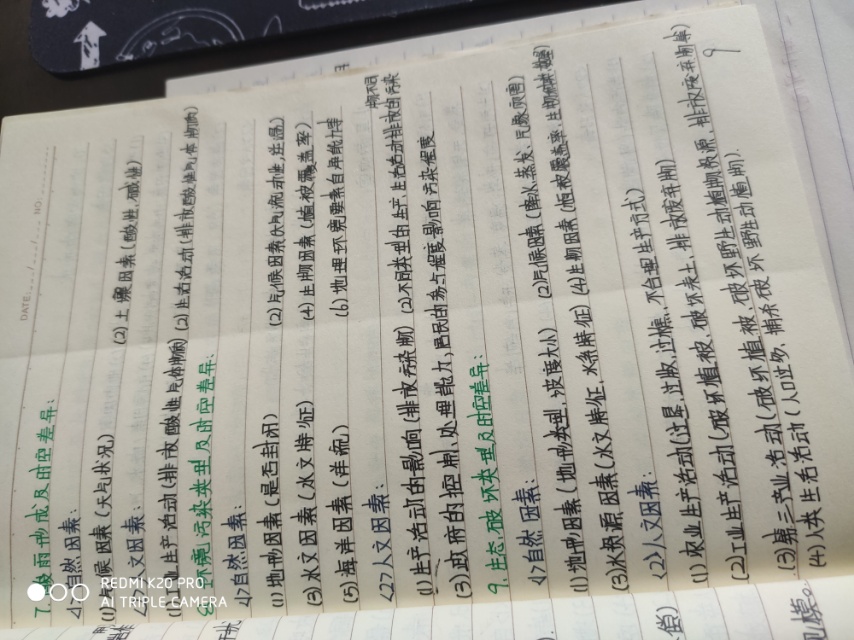 DATE....../....../...... NO:........
7.酸雨形成及时空差异:
<1>自然因素:
(1)气候因素(天气状况) (2)土壤因素(酸性,碱性)
<2>人文因素:
(1)工业生产活动(排放酸性气体物质) (2)生活活动(排放酸性气体物质)
8.环境污染类型及时空差异:
<1>自然因素:
(1)地形因素(是否封闭) (2)气候因素(大气流动性,注湿)
(3)水文因素(水文特征) (4)生物因素(植被覆盖率)
(5)海洋因素(洋流) (6)地理环境要素自净能力等
<2>人文因素: 物不同
(1)生产活动的影响(排放污染物) (2)不同类型的生产,生活活动排放的污染
(3)政府的控制,处理能力,居民的参与程度影响污染程度
9.生态破坏类型及时空差异:
<1>自然因素:
(1)地形因素(地形类型,坡度大小) (2)气候因素(降水,蒸发,气象灾害)
(3)水资源因素(水文特征,水系特征) (4)生物因素(植被覆盖率,生物种类,数量)
(2)人文因素:
(1)农业生产活动(过垦,过牧,过樵,不合理生产方式)
(2)工业生产活动(破坏植被,破坏表土,排放废弃物)
(3)第三产业活动(破坏植被,破坏野生动植物资源,排放废弃物等)
(4)人类生活活动(人口过多,捕杀破坏野生动植物).
9
偿)
规模。
REDMI K20 PRO
AI TRIPLE CAMERA